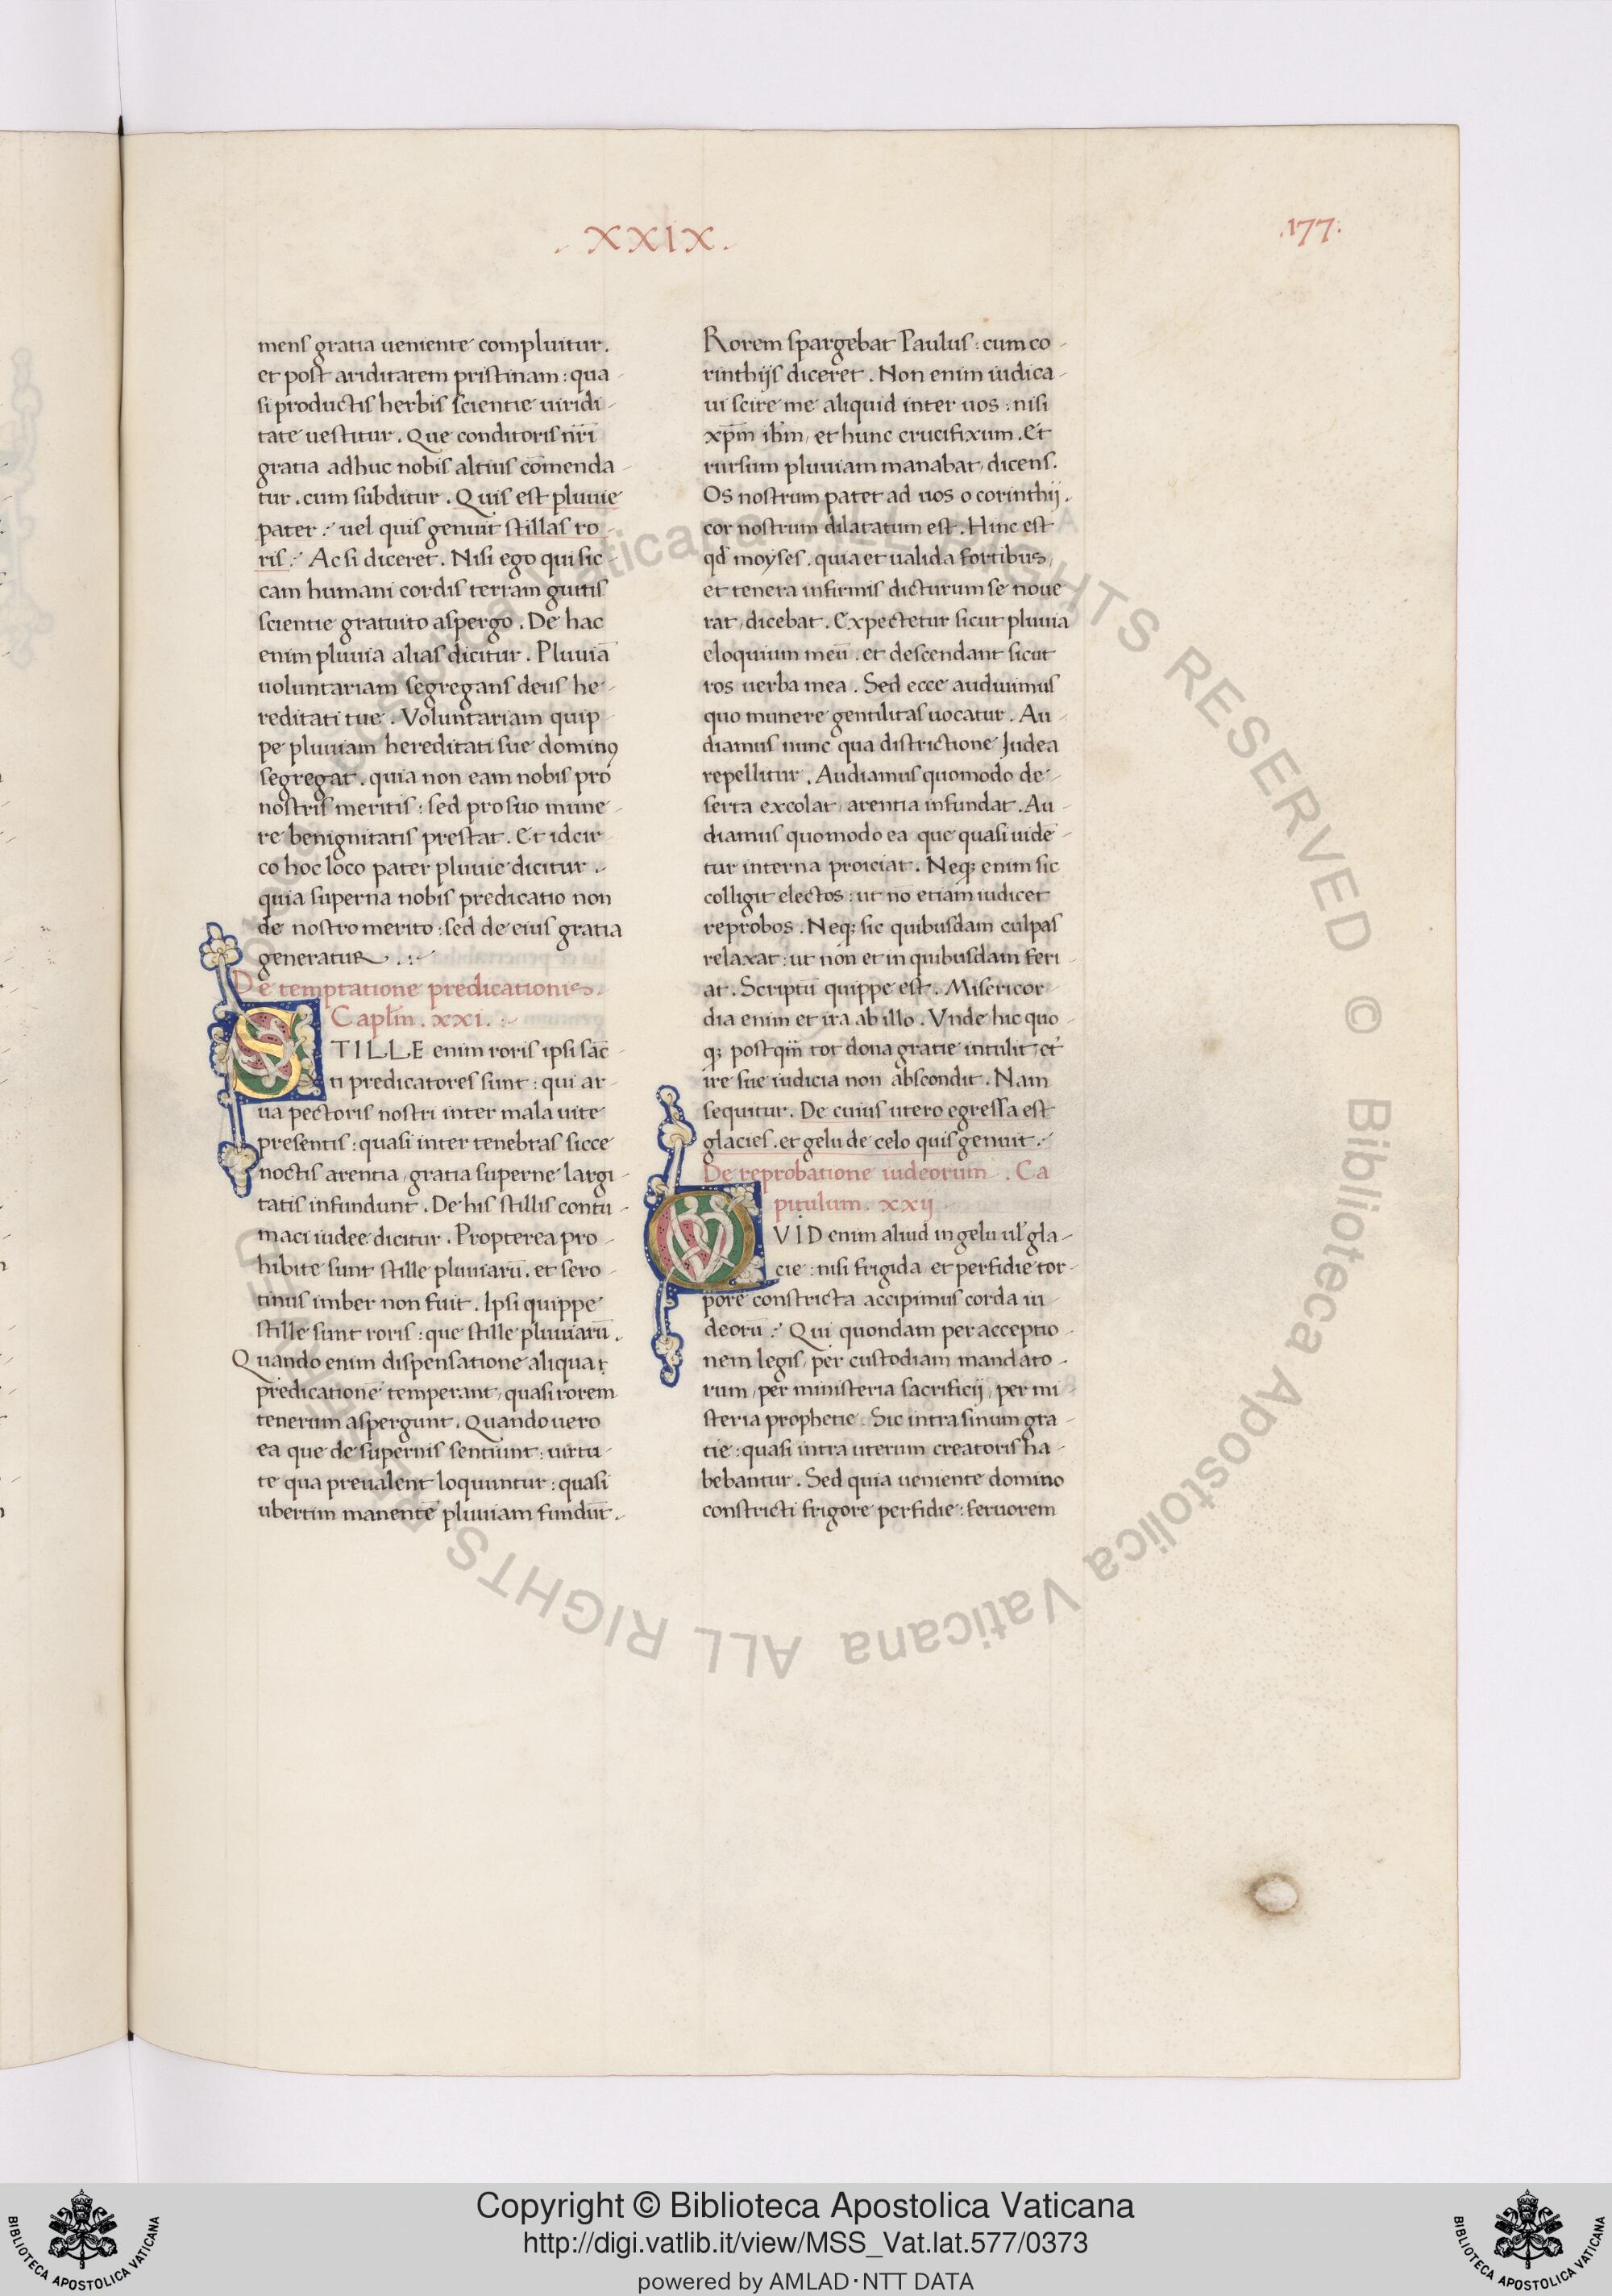 . XXIX .
.177.
mens gratia ueniente compluitur .
et post ariditatem pristinam : qua -
si productis herbis scientie uiridi -
tate uestitur . Que conditoris nr̄i
gratia adhuc nobis altius cōmenda -
tur . cum subditur . Quis est pluuie
pater : uel quis genuit stillas ro -
ris : Ac si diceret . Nisi ego qui sic -
cam humani cordis terram guttis
scientie gratuito aspergo . De hac
enim pluuia alias dicitur . Pluuiā
uoluntariam segregans deus he -
reditati tue . Voluntariam quip -
pe pluuiam hereditati sue dominꝰ
segregat . quia non eam nobis pro
nostris meritis : sed pro suo mune -
re benignitatis prestat . Et idcir -
co hoc loco pater pluuie dicitur .
quia superna nobis predicatio non
de nostro merito : sed de eius gratia
generatur . : -
De temptatione predicationis .
Capl̄m . xxi . : -
STILLE enim roris ipsi sāc -
ti predicatores sunt : qui ar -
ua pectoris nostri inter mala uite
presentis : quasi inter tenebras sicce
noctis arentia , gratia superne largi -
tatis infundunt . De his stillis contu -
maci iudee dicitur . Propterea pro -
hibite sunt stille pluuiarū . et sero -
tinus imber non fuit . Ipsi quippe
stille sunt roris : que stille pluuiarū .
Quando enim dispensatione aliqua
predicationē temperant , quasi rorem
tenerum aspergunt . Quando uero
ea que de supernis sentiunt : uirtu -
te qua preualent loquuntur : quasi
ubertim manentē pluuiam fundūt .
Rorem spargebat Paulus : cum co -
rinthijs diceret . Non enim iudica -
ui scire me aliquid inter uos : nisi
xp̄m ih̄m , et hunc crucifixum . Et
rursum pluuiam manabat , dicens .
Os nostrum patet ad uos o corinthij .
cor nostrum dilatatum est . Hinc est
qd̄ moyses . quia et ualida fortibus ,
et tenera infirmis dicturum se noue
rat , dicebat . Expectetur sicut pluuia
eloquium meū . et descendant sicut
ros uerba mea . Sed ecce audiuimus
quo munere gentilitas uocatur . Au -
diamus nunc qua districtione Iudea
repellitur . Audiamus quomodo de -
serta excolat , arentia infundat . Au -
diamus quomodo ea que quasi uide -
tur interna proiciat . Neq; enim sic
colligit electos : ut nō etiam iudicet
reprobos . Neq; sic quibusdam culpas
relaxat : ut non et in quibusdam feri -
at . Scriptū quippe est . Misericor -
dia enim et ira ab illo . Vnde hic quo -
q; postq̄m tot dona gratie intulit , et
ire sue iudicia non abscondit . Nam
sequitur . De cuius utero egressa est
glacies . et gelu de celo quis genuit . -
De reprobatione iudeorum . Ca
pitulum . xxij .
QVID enim aliud in gelu ul̄ gla -
cie : nisi frigida , et perfidie tor -
pore constricta accipimus corda iu -
deorū : Qui quondam per acceptio -
nem legis , per custodiam mandato -
rum , per ministeria sacrificij , per mi -
steria prophetie . Sic intra sinum gra -
tie : quasi intra uterum creatoris ha -
bebantur . Sed quia ueniente domino
constricti frigore perfidie : feruorem
Biblioteca Apostolica Vaticana ALL RIGHTS RESERVED ©
Copyright © Biblioteca Apostolica Vaticana
http://digi.vatlib.it/view/MSS_Vat.lat.577/0373
powered by AMLAD·NTT DATA
BIBLIOTECA APOSTOLICA VATICANA
BIBLIOTECA APOSTOLICA VATICANA